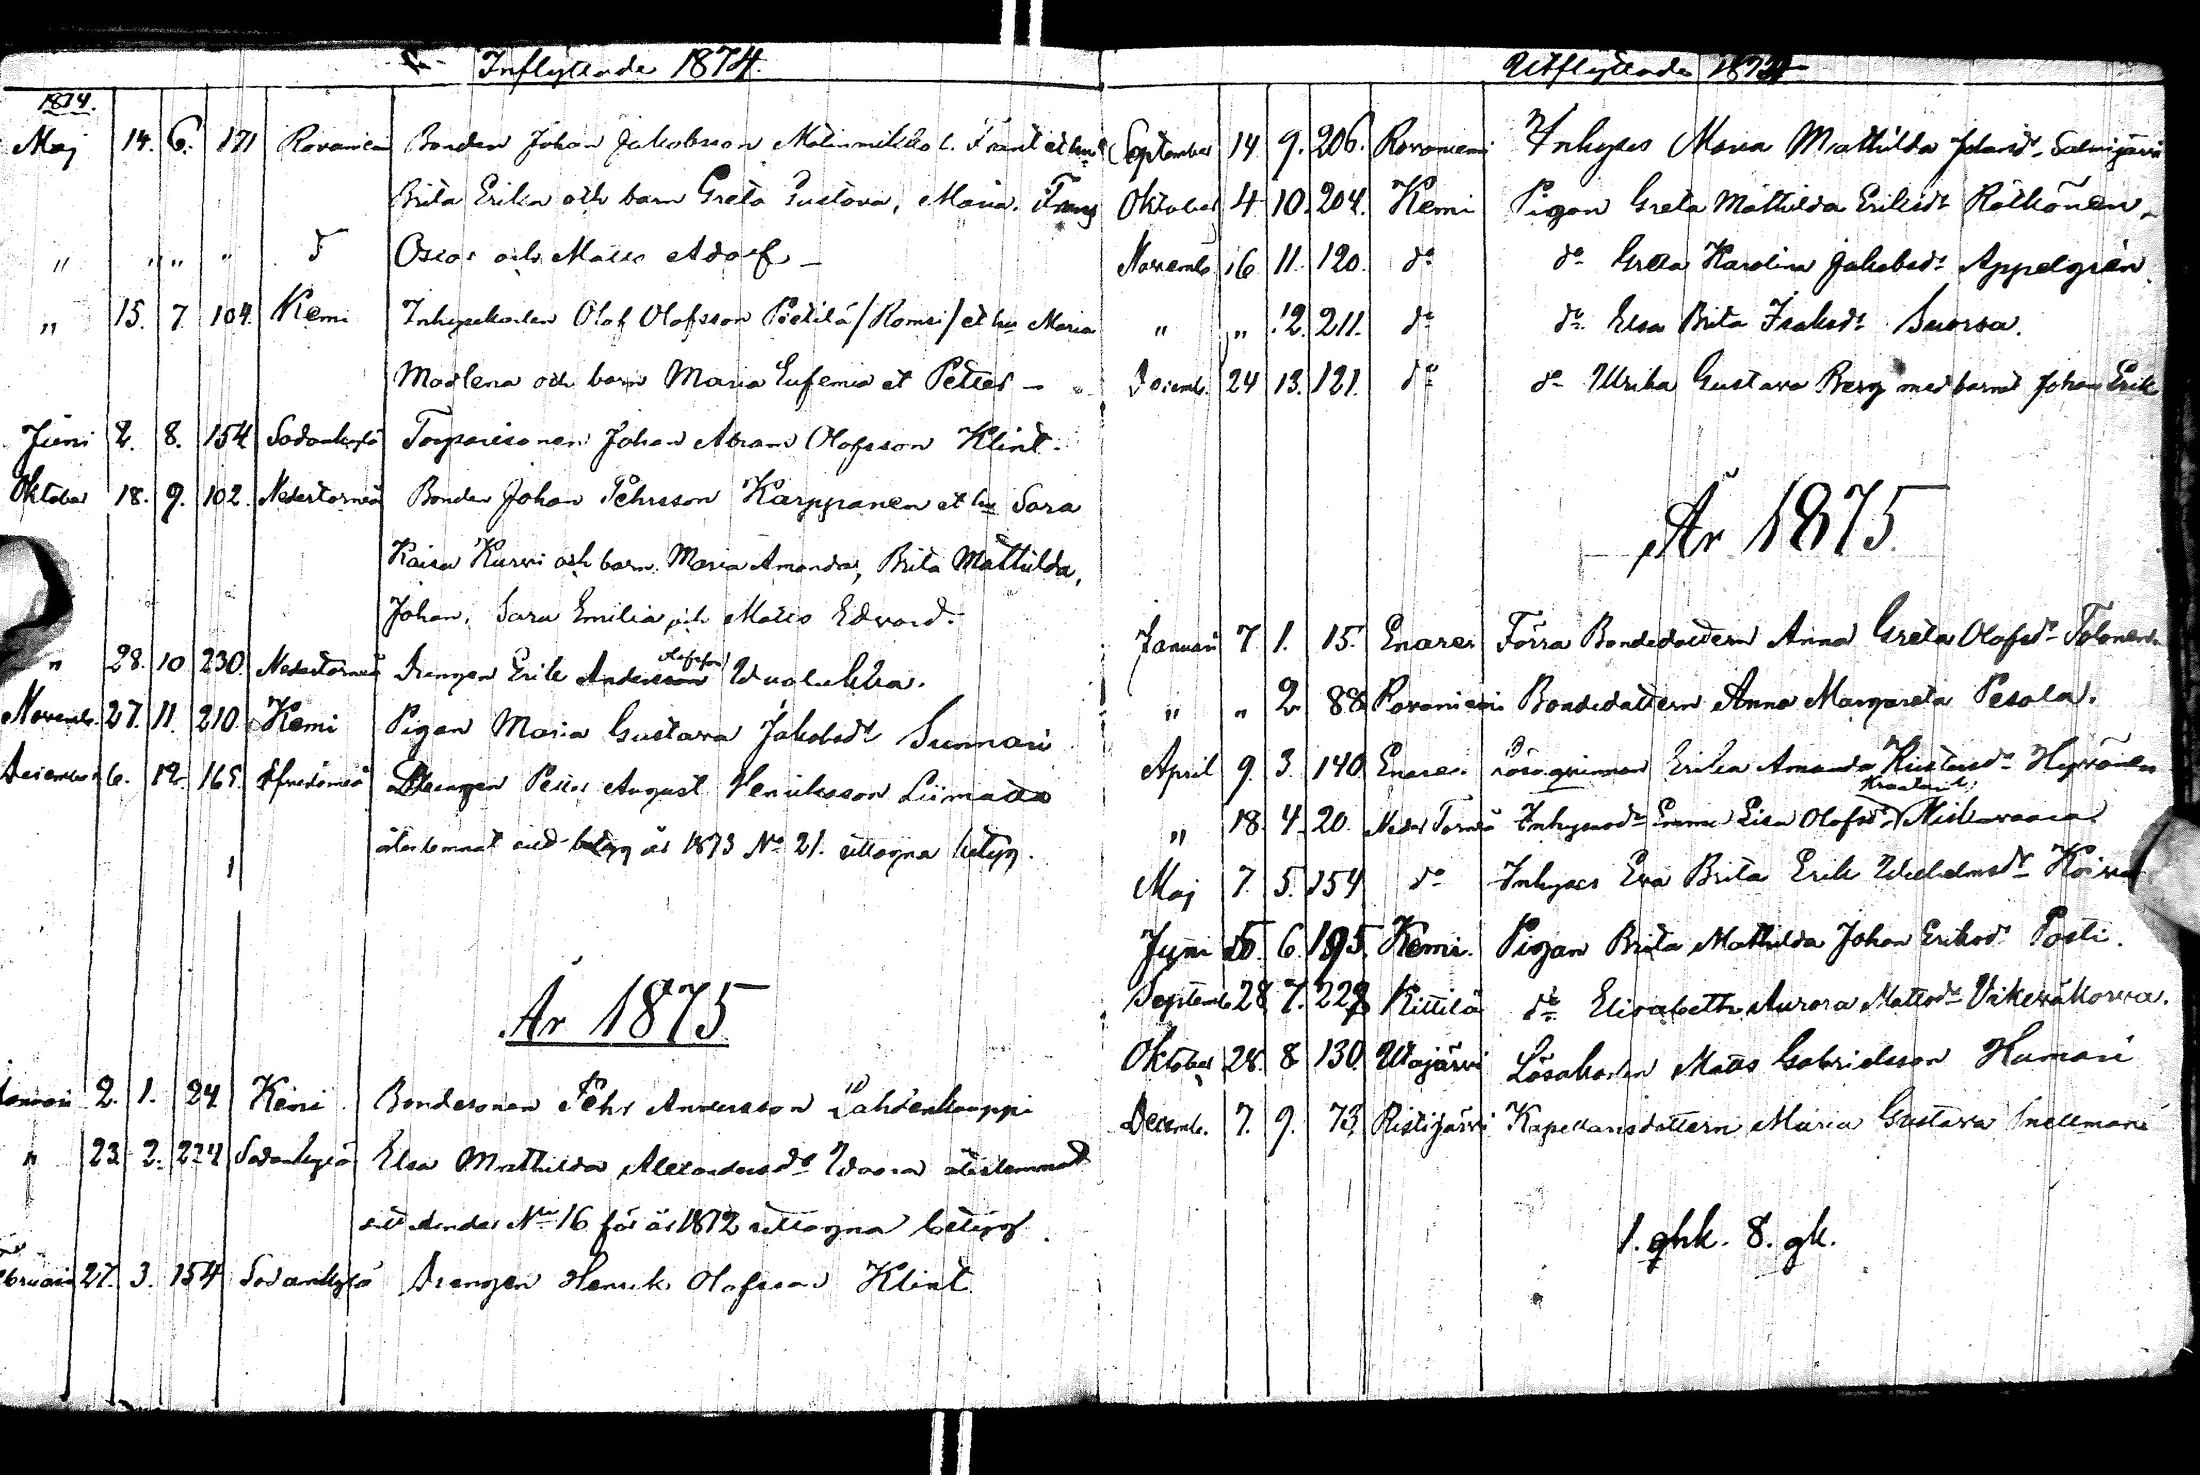 Inflyttande 1874.
1874.
Maj 14. 6. 171 Rovaniemi Bonden Johan Jakobsson
Brita Erika och barn Greta Gustava, Maria, Frans
" " " " Oscar och Matts Adolf –
" 15. 7. 104. Kemi Inhyseskarlen Olof Olofsson Pietilä /Romsi/ et hu Maria
Madlena och barn Maria Eufemia et Petter –
Juni 2. 8. 154 Sodankylä Torparesonen Johan Abram Olofsson Klint.
Oktober 18. 9. 102. Nedertorneå Bonden Johan Pehrsson Karppanen et hu Sara
Kaisa Kurvi och barn Maria Amanda, Brita Mathilda,
Johan, Sara Emilia och Matts Edvard.
" 28. 10 230. Nedertorneå Drengen Erik Andersson Vuolukka.
Novemb. 27. 11. 210. Kemi Pigan Maria Gustava Jakobsdr Sunnari
December 6. 12. 165. Öfvertorneå Drengen Petter August Henriksson Liimatta
återlemnat sitt betyg år 1873 No 21. uttagna betyg.
År 1875
Januari 2. 1. 24 Kemi Bondesonen Pehr Andersson Lahdenkauppi
" 23. 2. 224 Sodankylä Elsa Mathilda Alexandersdr Vaara återlemnat
sitt under No 16 för år 1872 uttagna betyg.
Februari 27. 3. 154 Sodankylä Drengen Henrik Olofsson Klint
Utflyttande 1874
September 14 9. 206. Rovaniemi Inhyses Maria Mathilda Johansdr Salmijärvi
Oktober 4 10. 204. Kemi Pigan Greta Mathilda Eriksdr Rätkönen.
Novemb. 16 11. 120. do do Greta Karolina Jakobsdr Appelgrén.
" " 12. 211. do do Elsa Brita Isaksdr Suorsa.
Decemb. 24 13. 121. do do Ulrika Gustava Berg med barnet Johan Erik
År 1875
Januari 7. 1. 15. Enare Förra Bondedottern Anna Greta Olofsdr Tolonen
" " 2 88 Rovaniemi Bondedottern Anna Margareta Pesola.
April 9. 3. 140 Enare Erika Amanda Hyvönen
" 18. 4. 20. Neder Torneå Inhysesdr Emma Lisa Olofsdr Niskavaara
Maj 7. 5. 154 do Inhyses Eva Brita Erik Wilhelmsdr
Juni 15. 6. 195. Kemi. Pigan Brita Mathilda Johan Eriksdr Posti.
Septemb. 28 7. 228 Kittilä do Elisabeth Aurora Mattsdr
Oktober 28. 8 130. Utajärvi Lösakarlen Matts Gabrielsson Hamari
Decemb. 7. 9. 73. Ristijärvi Kapellansdottern Maria Gustava Snellman
1. ghk. 8. gk.